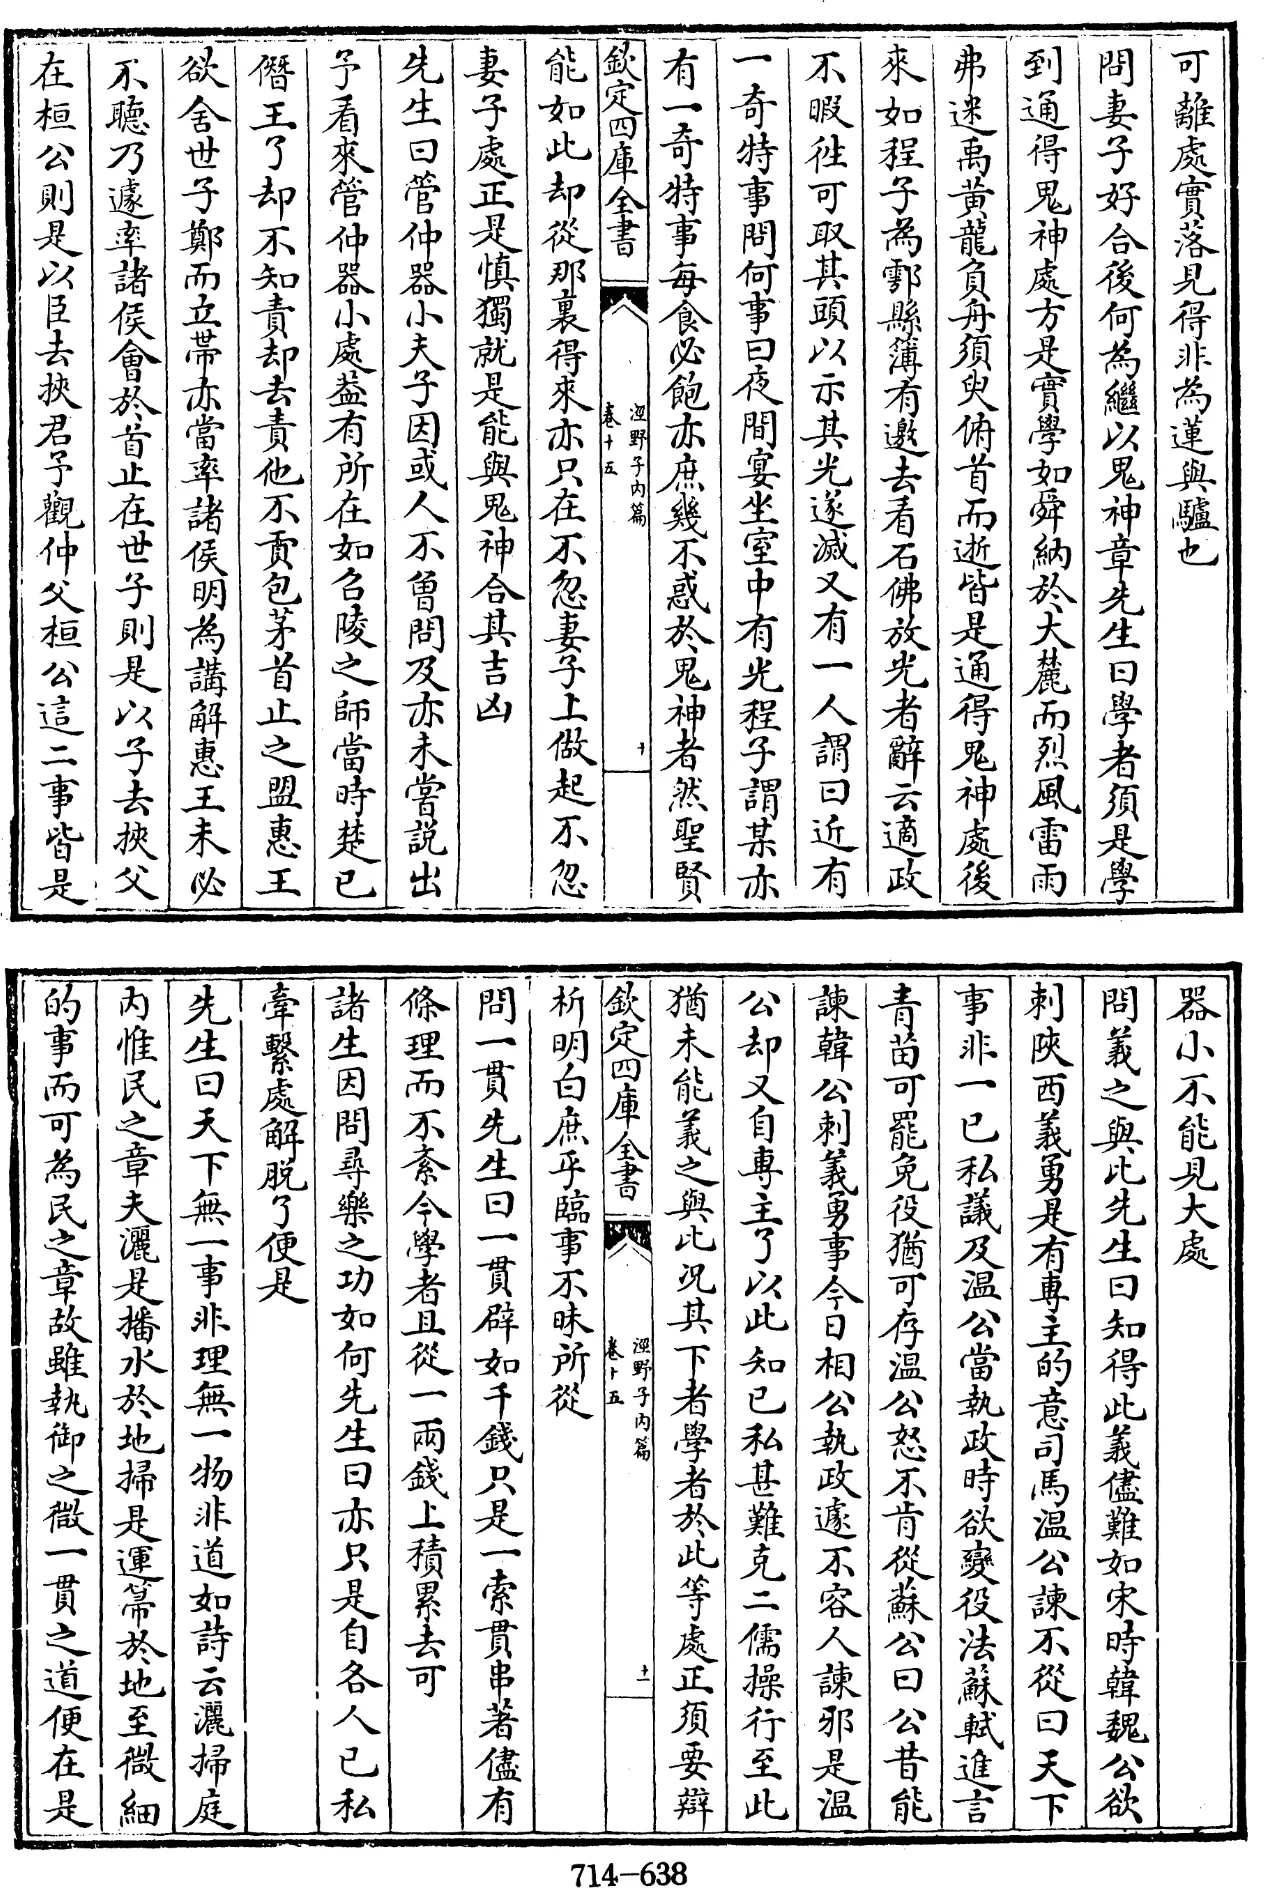 可離處實落見得非為蓮與驢也
問妻子好合後何為繼以鬼神章先生曰學者須是學
到通得鬼神處方是實學如舜納於大麓而烈風雷雨
弗迷禹黄龍負舟須臾俯首而逝皆是通得鬼神處後
來如程子為鄠縣簿有邀去看石佛放光者辭云適政
不暇徃可取其頭以示其光遂滅又有一人謂曰近有
一奇特事問何事曰夜間宴坐室中有光程子謂某亦
有一奇特事每食必飽亦庶幾不惑於鬼神者然聖賢
欽定四庫全書
涇野子内篇
卷十五
十
能如此却從那裏得來亦只在不忽妻子上做起不忽
妻子處正是慎獨就是能與鬼神合其吉凶
先生曰管仲器小夫子因或人不曾問及亦未嘗説出
予看來管仲器小處葢有所在如召陵之師當時楚已
僭王了却不知責却去責他不貢包茅首止之盟惠王
欲舍世子鄭而立帶亦當率諸侯明為講解惠王未必
不聽乃遽率諸侯會於首止在世子則是以子去挾父
在桓公則是以臣去挾君予觀仲父桓公這二事皆是
器小不能見大處
問義之與比先生曰知得此義儘難如宋時韓魏公欲
刺陜西義勇是有專主的意司馬温公諫不從曰天下
事非一已私議及温公當執政時欲變役法蘇軾進言
青苗可罷免役猶可存温公怒不肯從蘇公曰公昔能
諫韓公刺義勇事今日相公執政遽不容人諫邪是温
公却又自專主了以此知已私甚難克二儒操行至此
猶未能義之與比况其下者學者於此等處正須要辯
欽定四庫全書
涇野子内篇
卷十五
十一
析明白庶乎臨事不昧所從
問一貫先生曰一貫辟如千錢只是一索貫串著儘有
條理而不紊今學者且從一兩錢上積累去可
諸生因問尋樂之功如何先生曰亦只是自各人已私
牽繫處解脱了便是
先生曰天下無一事非理無一物非道如詩云灑掃庭
内惟民之章夫灑是播水於地掃是運箒於地至微細
的事而可為民之章故雖執御之微一貫之道便在是
714-638